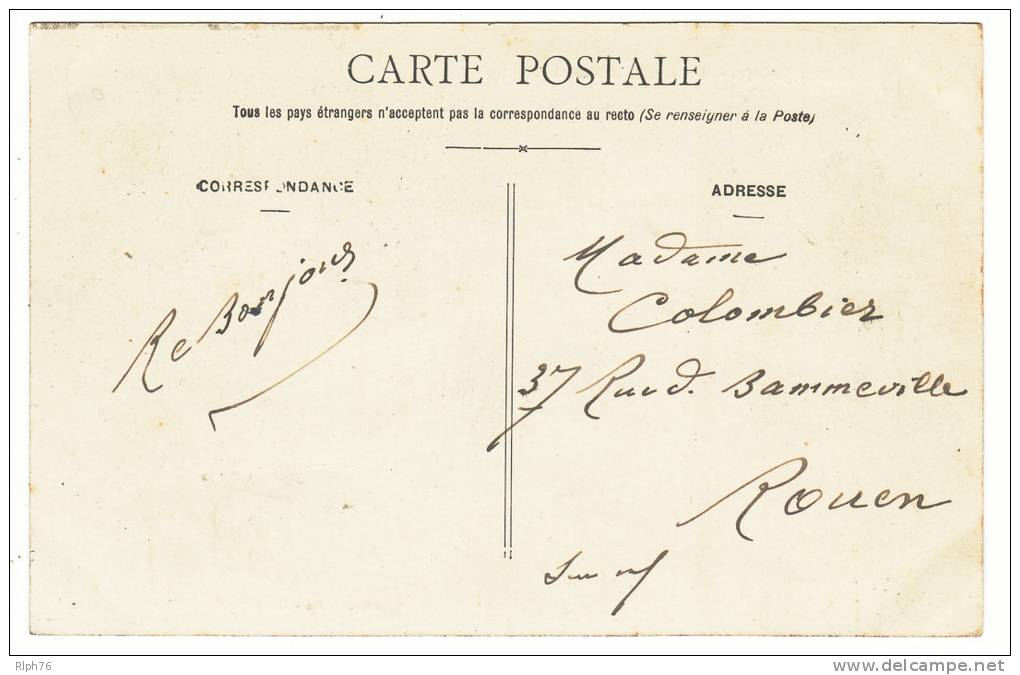 CARTE POSTALE
Tous les pays étrangers n'acceptent pas la correspondance au recto (Se renseigner à la Poste)
CORRESPONDANCE
Re Bonjour
ADRESSE
Madame
Colombier
37 Rue d. Bammeville
Rouen
Rlph76
delcampe.net